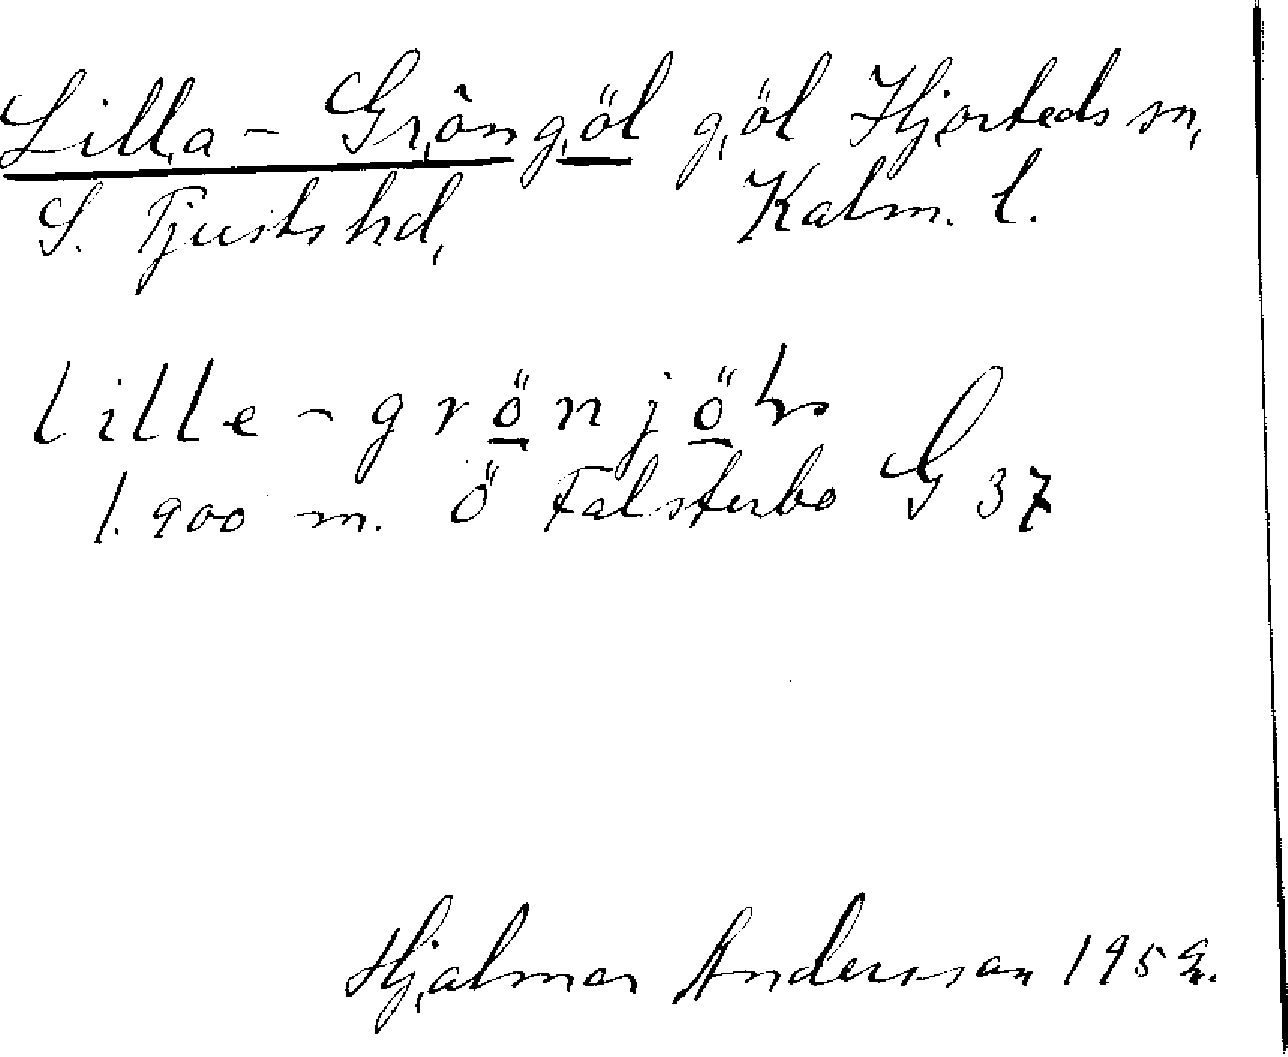 Lilla-Gröngöl göl Hjorteds sn,
S. Tjusts hd, Kalm. l.
lille-grönjöl
1.900 m. Ö Falsterbo G 37
Hjalmar Andersson 1952.